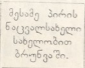 მესამე პირის
ნაცვალსახელი
სახელობით
ბრუნვაში.